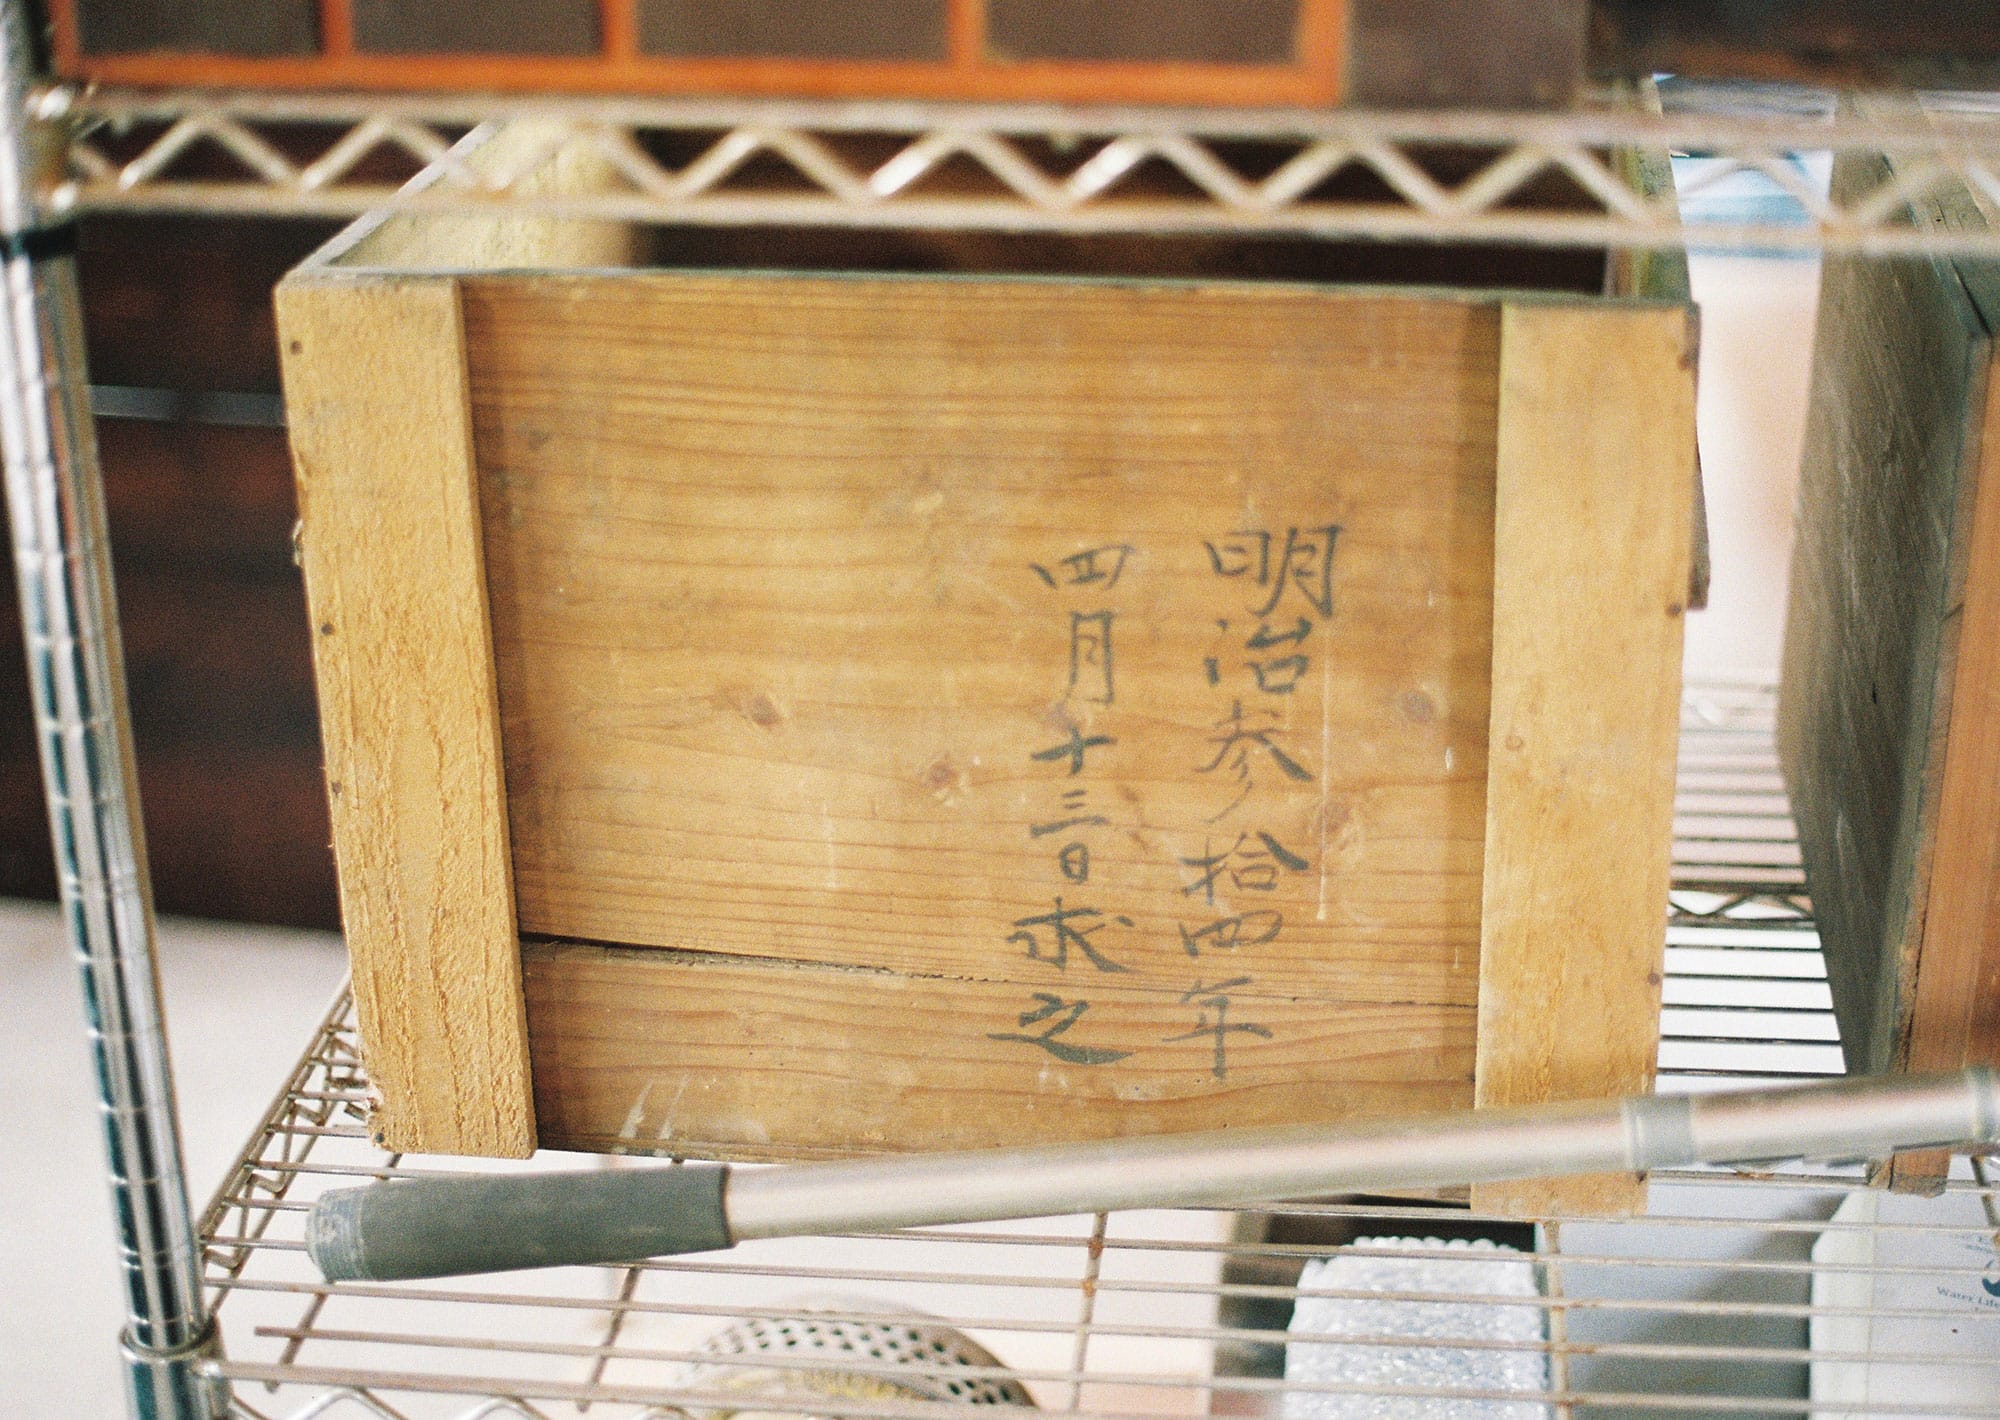 明治参拾四年
四月十三日求之
Water Life